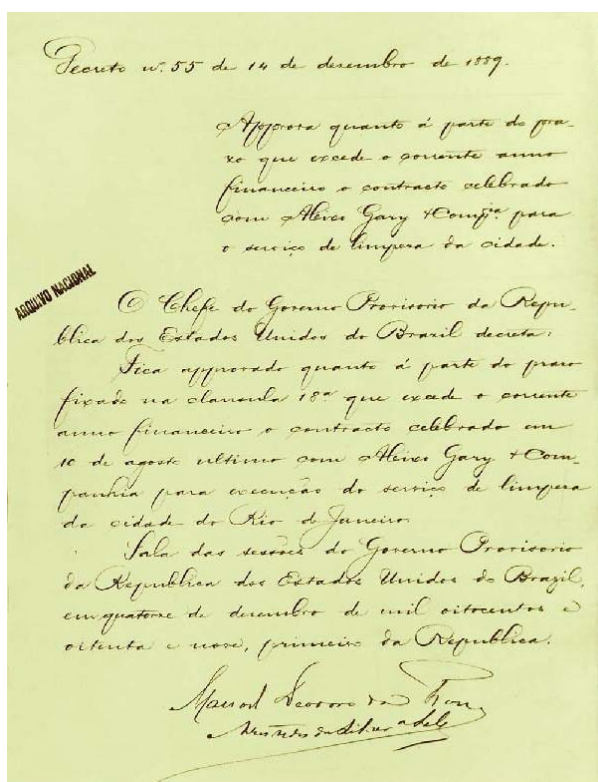 Decreto nº 55 de 14 de desembro de 1889.
Approva quanto á parte do pra-
so que excede o corrente anno
financeiro o contracto celebrado
com Aleixo Gary & Compª para
o serviço de limpeza da cidade.
ARQUIVO NACIONAL
O Chefe do Governo Provisorio da Repu-
blica dos Estados Unidos do Brazil decreta:
Fica approvado quanto á parte do praso
fixado na clausula 18ª que excede o corrente
anno financeiro o contracto celebrado em
10 de agosto ultimo com Aleixo Gary & Com-
panhia para execução do serviço de limpeza
da cidade do Rio de Janeiro
Sala das sessões do Governo Provisorio
da Republica dos Estados Unidos do Brazil,
em quatorze de desembro de mil oitocentos e
oitenta e nove, primeiro da Republica.
Manoel Deodoro da
da Silva